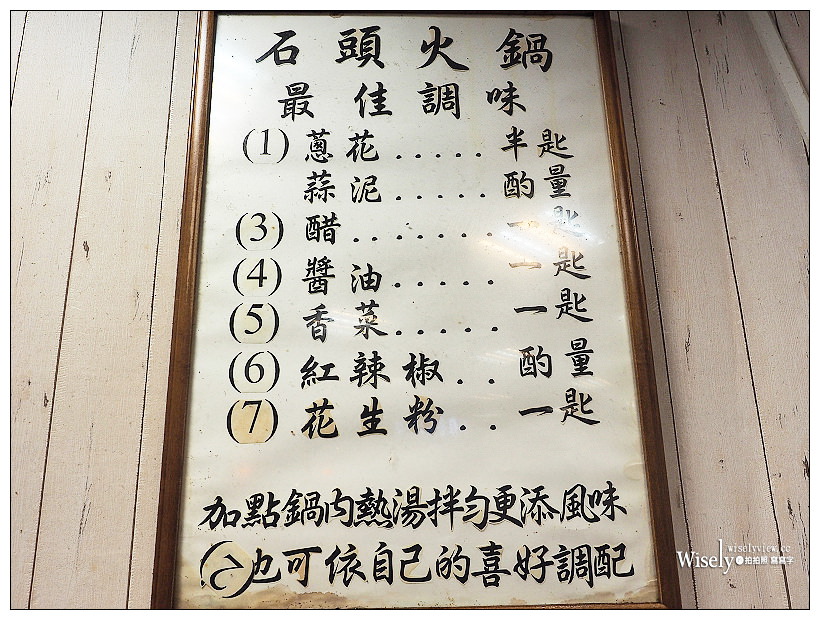 石頭火鍋
最佳調味
(1) 蔥花..... 半匙
蒜泥..... 酌量
(3) 醋....... 一匙
(4) 醬油..... 一匙
(5) 香菜..... 一匙
(6) 紅辣椒.. 酌量
(7) 花生粉.. 一匙
加點鍋內熱湯拌勻更添風味
也可依自己的喜好調配
wiselyview.cc
Wisely 拍拍照 寫寫字